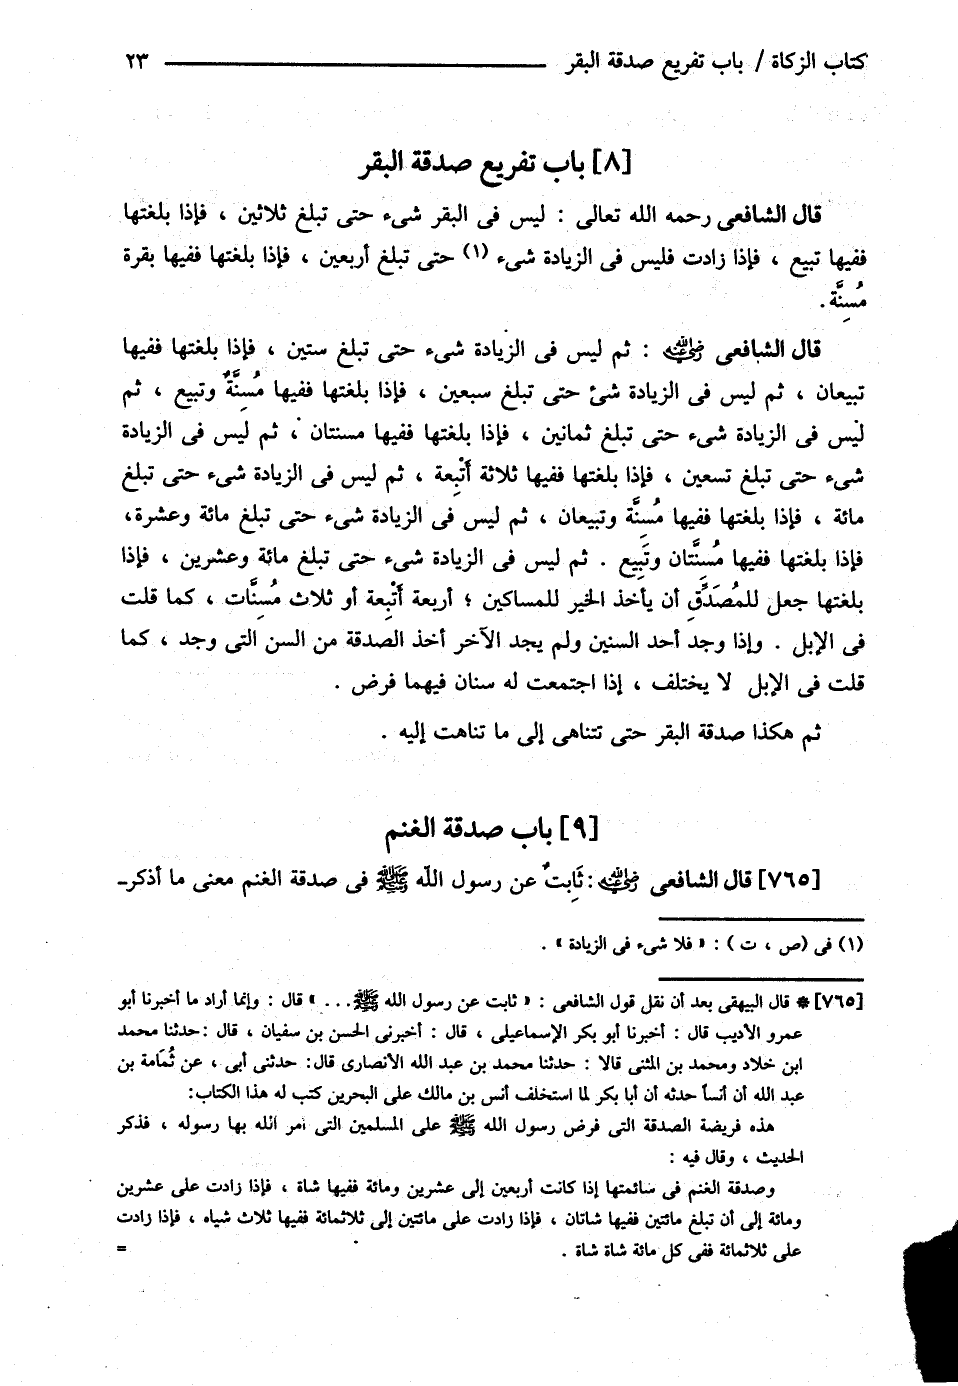 كتاب الزكاة / باب تفريع صدقة البقر ــــــــــــــــــــ ٢٣
[٨] باب تفريع صدقة البقر
قال الشافعى رحمه الله تعالى : ليس فى البقر شىء حتى تبلغ ثلاثين ، فإذا بلغتها
ففيها تبيع ، فإذا زادت فليس فى الزيادة شىء (١) حتى تبلغ أربعين ، فإذا بلغتها ففيها بقرة
مُسِنَّة .
قال الشافعى رضي الله عنه : ثم ليس فى الزيادة شىء حتى تبلغ ستين ، فإذا بلغتها ففيها
تبيعان ، ثم ليس فى الزيادة شئ حتى تبلغ سبعين ، فإذا بلغتها ففيها مُسِنَّةٌ وتبيع ، ثم
ليس فى الزيادة شىء حتى تبلغ ثمانين ، فإذا بلغتها ففيها مسنتان ، ثم ليس فى الزيادة
شىء حتى تبلغ تسعين ، فإذا بلغتها ففيها ثلاثة أَتْبِعة ، ثم ليس فى الزيادة شىء حتى تبلغ
مائة ، فإذا بلغتها ففيها مُسِنَّة وتبيعان ، ثم ليس فى الزيادة شىء حتى تبلغ مائة وعشرة،
فإذا بلغتها ففيها مُسِنَّتان وتَبِيع . ثم ليس فى الزيادة شىء حتى تبلغ مائة وعشرين ، فإذا
بلغتها جعل للمُصَدِّقِ أن يأخذ الخير للمساكين ؛ أربعة أَتْبِعة أو ثلاث مُسِنَّات ، كما قلت
فى الإبل . وإذا وجد أحد السنين ولم يجد الآخر أخذ الصدقة من السن التى وجد ، كما
قلت فى الإبل لا يختلف ، إذا اجتمعت له سنان فيهما فرض .
ثم هكذا صدقة البقر حتى تتناهى إلى ما تناهت إليه .
[٩] باب صدقة الغنم
[٧٦٥] قال الشافعى رضي الله عنه : ثَابِتٌ عن رسول الله ﷺ فى صدقة الغنم معنى ما أذكرـ
(١) فى (ص ، ت ) : « فلا شىء فى الزيادة » .
[٧٦٥] * قال البيهقى بعد أن نقل قول الشافعى : « ثابت عن رسول الله ﷺ . . . » قال : وإنما أراد ما أخبرنا أبو
عمرو الأديب قال : أخبرنا أبو بكر الإسماعيلى ، قال : أخبرنى الحسن بن سفيان ، قال :حدثنا محمد
ابن خلاد ومحمد بن المثنى قالا : حدثنا محمد بن عبد الله الأنصارى قال: حدثنى أبى ، عن ثُمَامة بن
عبد الله أن أنساً حدثه أن أبا بكر لما استخلف أنس بن مالك على البحرين كتب له هذا الكتاب:
هذه فريضة الصدقة التى فرض رسول الله ﷺ على المسلمين التى أمر الله بها رسوله ، فذكر
الحديث ، وقال فيه :
وصدقة الغنم فى سائمتها إذا كانت أربعين إلى عشرين ومائة ففيها شاة ، فإذا زادت على عشرين
ومائة إلى أن تبلغ مائتين ففيها شاتان ، فإذا زادت على مائتين إلى ثلاثمائة ففيها ثلاث شياه ، فإذا زادت
على ثلاثمائة ففى كل مائة شاة شاة . =